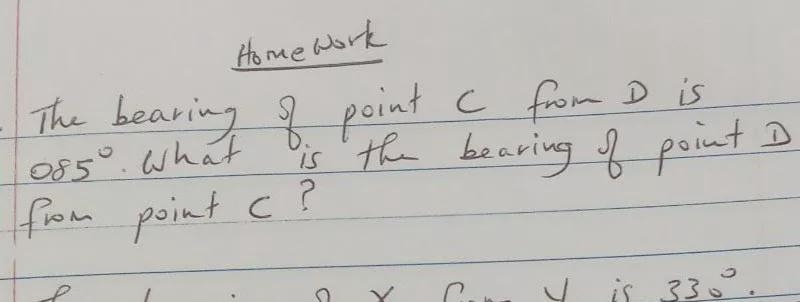 Home Work
The bearing of point C from D is
085°. What is the bearing of point D
from point C?
is 330°.